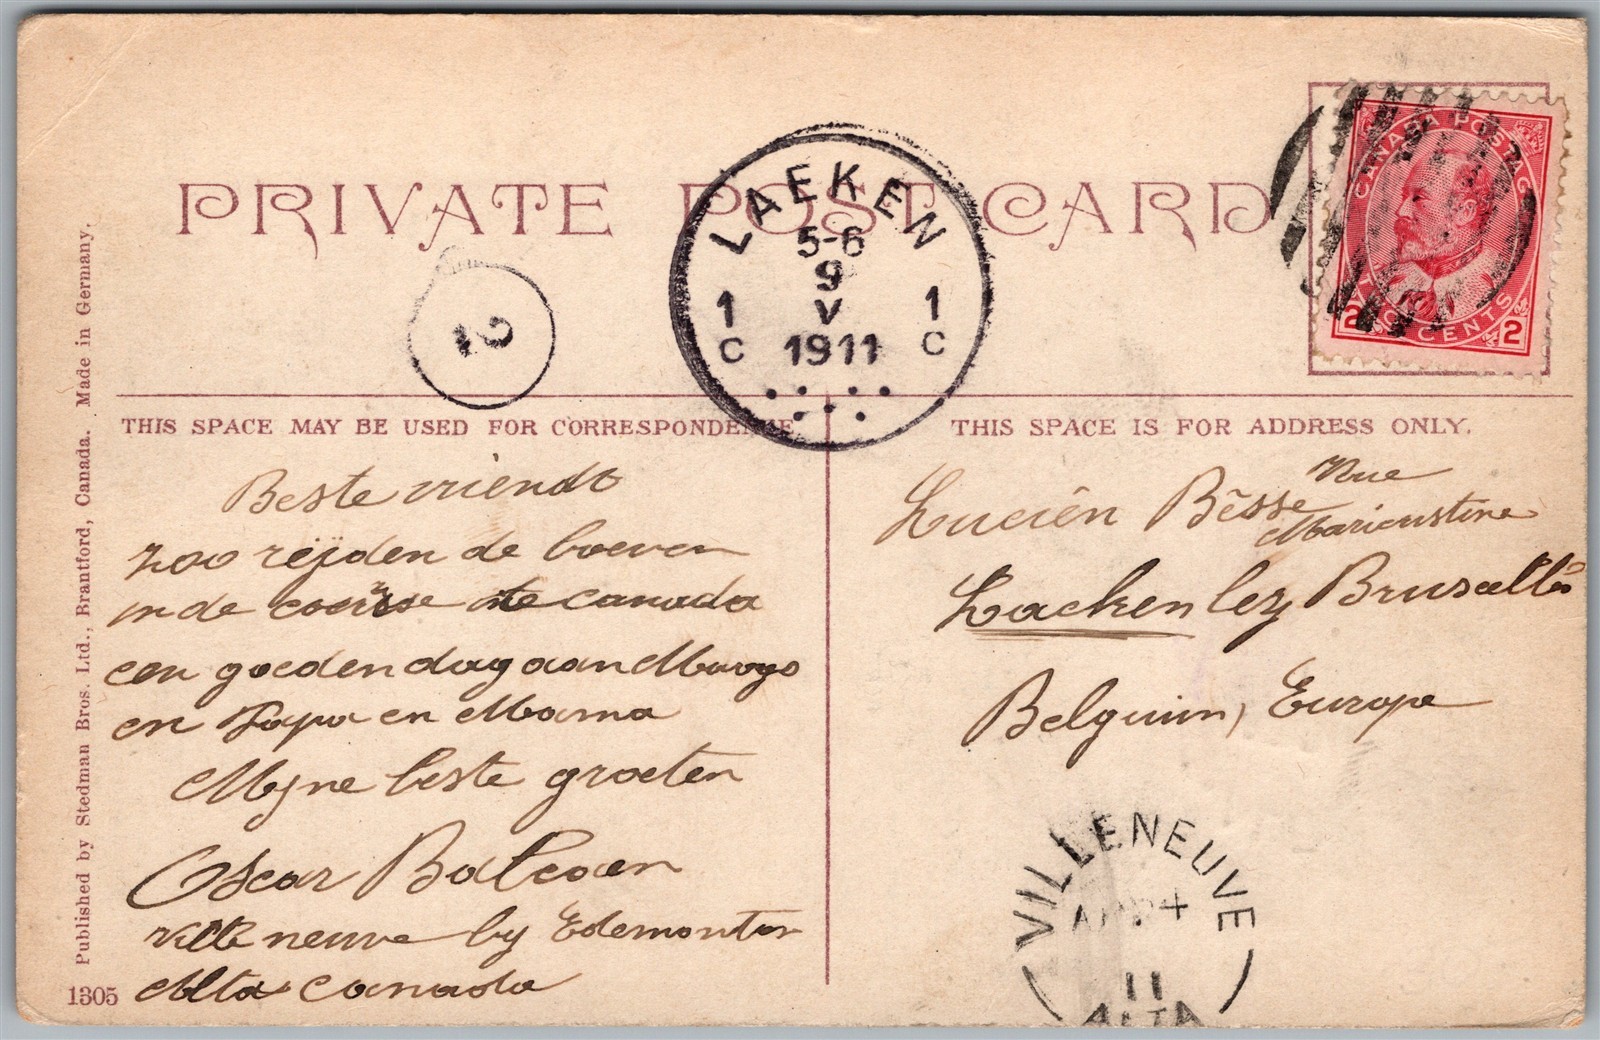 PRIVATE POST CARD
LAEKEN
5-6
9
V
1911
1 1
C C
21
CANADA POSTAGE
2 TWO CENTS 2
THIS SPACE MAY BE USED FOR CORRESPONDENCE.
THIS SPACE IS FOR ADDRESS ONLY.
Beste vriendt
zoo reijden de boeven
in de canada
een goeden dag aan
en Papa en Mama
Mijne beste groeten
Oscar
ville neuve by Edemonton
Alta Canada
Lucien Besse Rue
Laeken lez Bruxelles
Belguim, Europe
VILLENEUVE
AP 24
11
ALTA
Published by Stedman Bros. Ltd., Brantford, Canada. Made in Germany.
1305